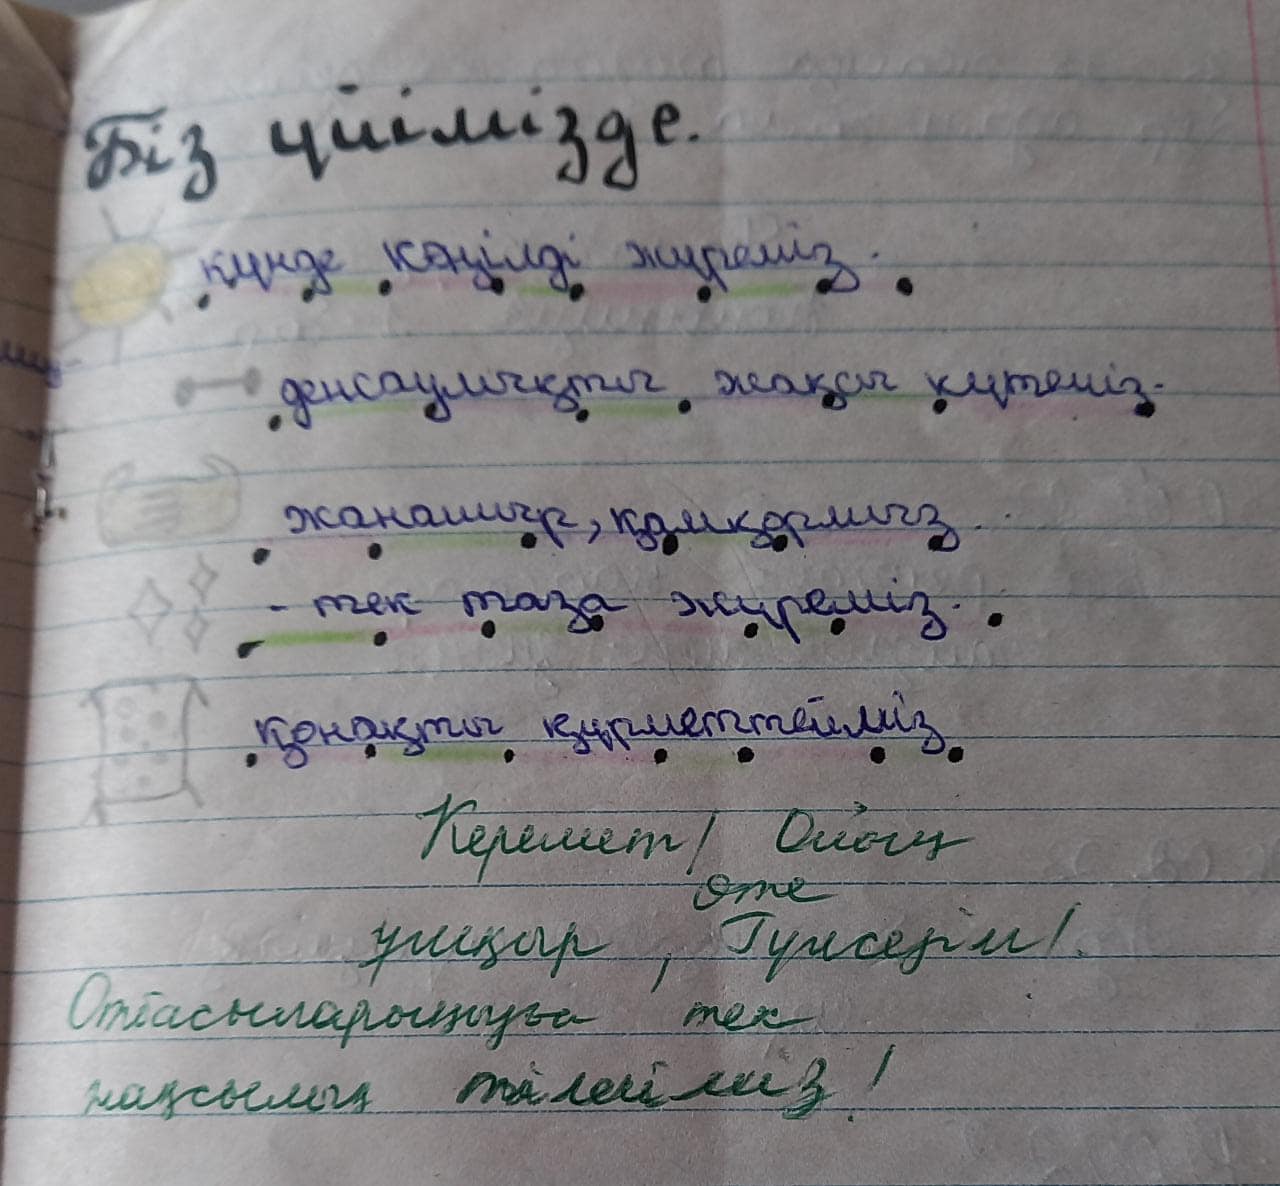 Біз үйімізде.
күнде көңілді жүреміз.
денсаулықты жақсы күтеміз.
жанашыр, қамқормыз.
- тек таза жүреміз.
қонақты құрметтейміз.
Керемет! Ойың
өте
ұшқыр, Гүлсезім!
Отбасыларыңызға тек
жақсылық тілейміз!